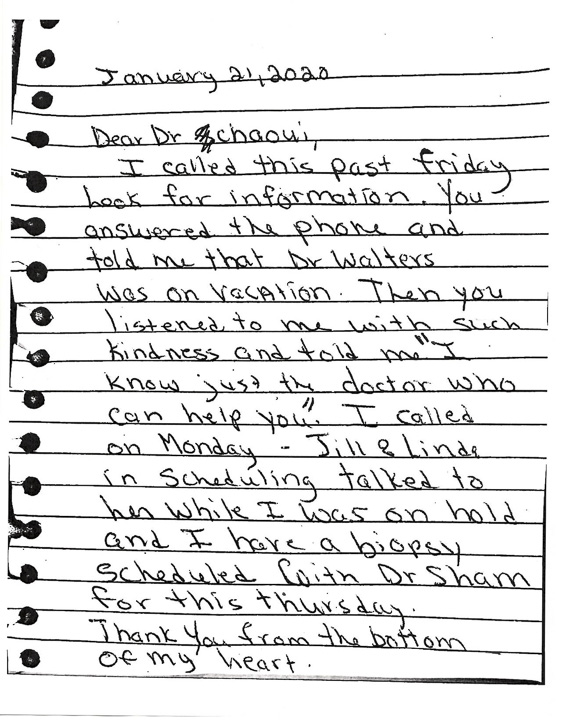 January 21, 2020
Dear Dr Schaoui,
I called this past friday
look for information. You
answered the phone and
told me that Dr Walters
was on vacation. Then you
listened to me with such
kindness and told me "I
know just the doctor who
can help you". I called
on Monday - Jill & Linda
in scheduling talked to
her while I was on hold
and I have a biopsy
scheduled with Dr Sham
for this thursday.
Thank You from the bottom
of my heart.